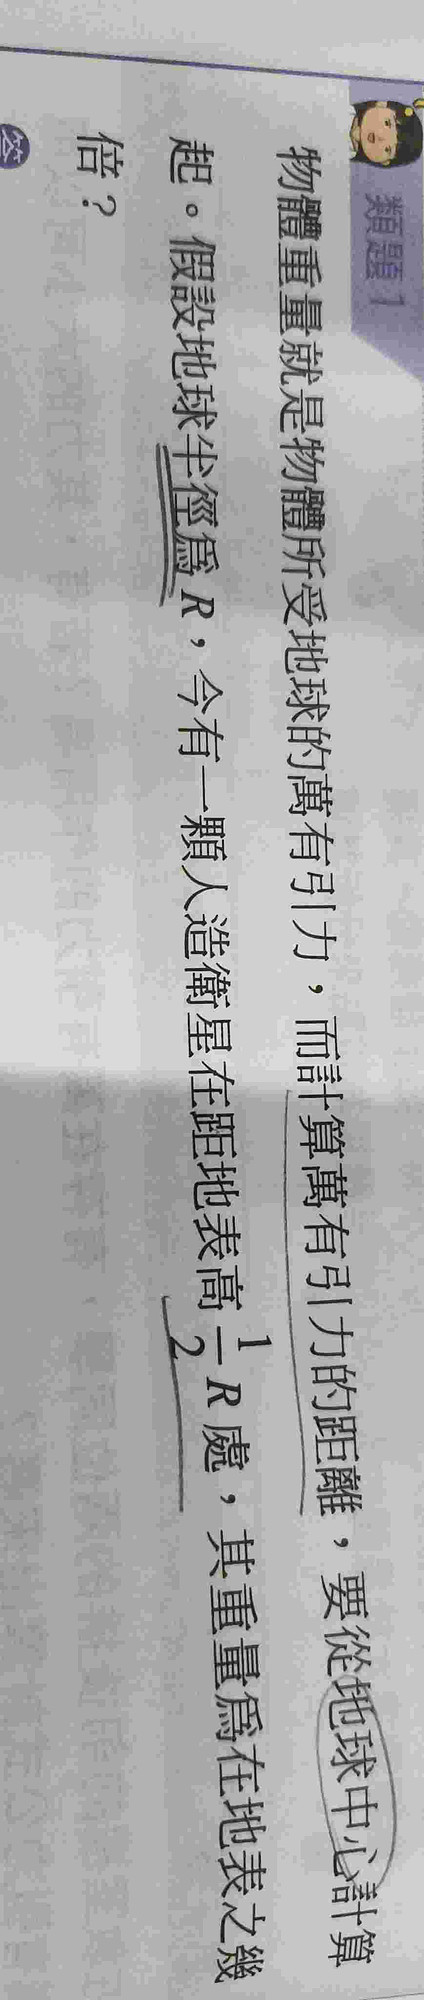 類題1
物體重量就是物體所受地球的萬有引力，而計算萬有引力的距離，要從地球中心計算
起。假設地球半徑為 R，今有一顆人造衛星在距地表高 1/2 R 處，其重量為在地表之幾
倍？
答